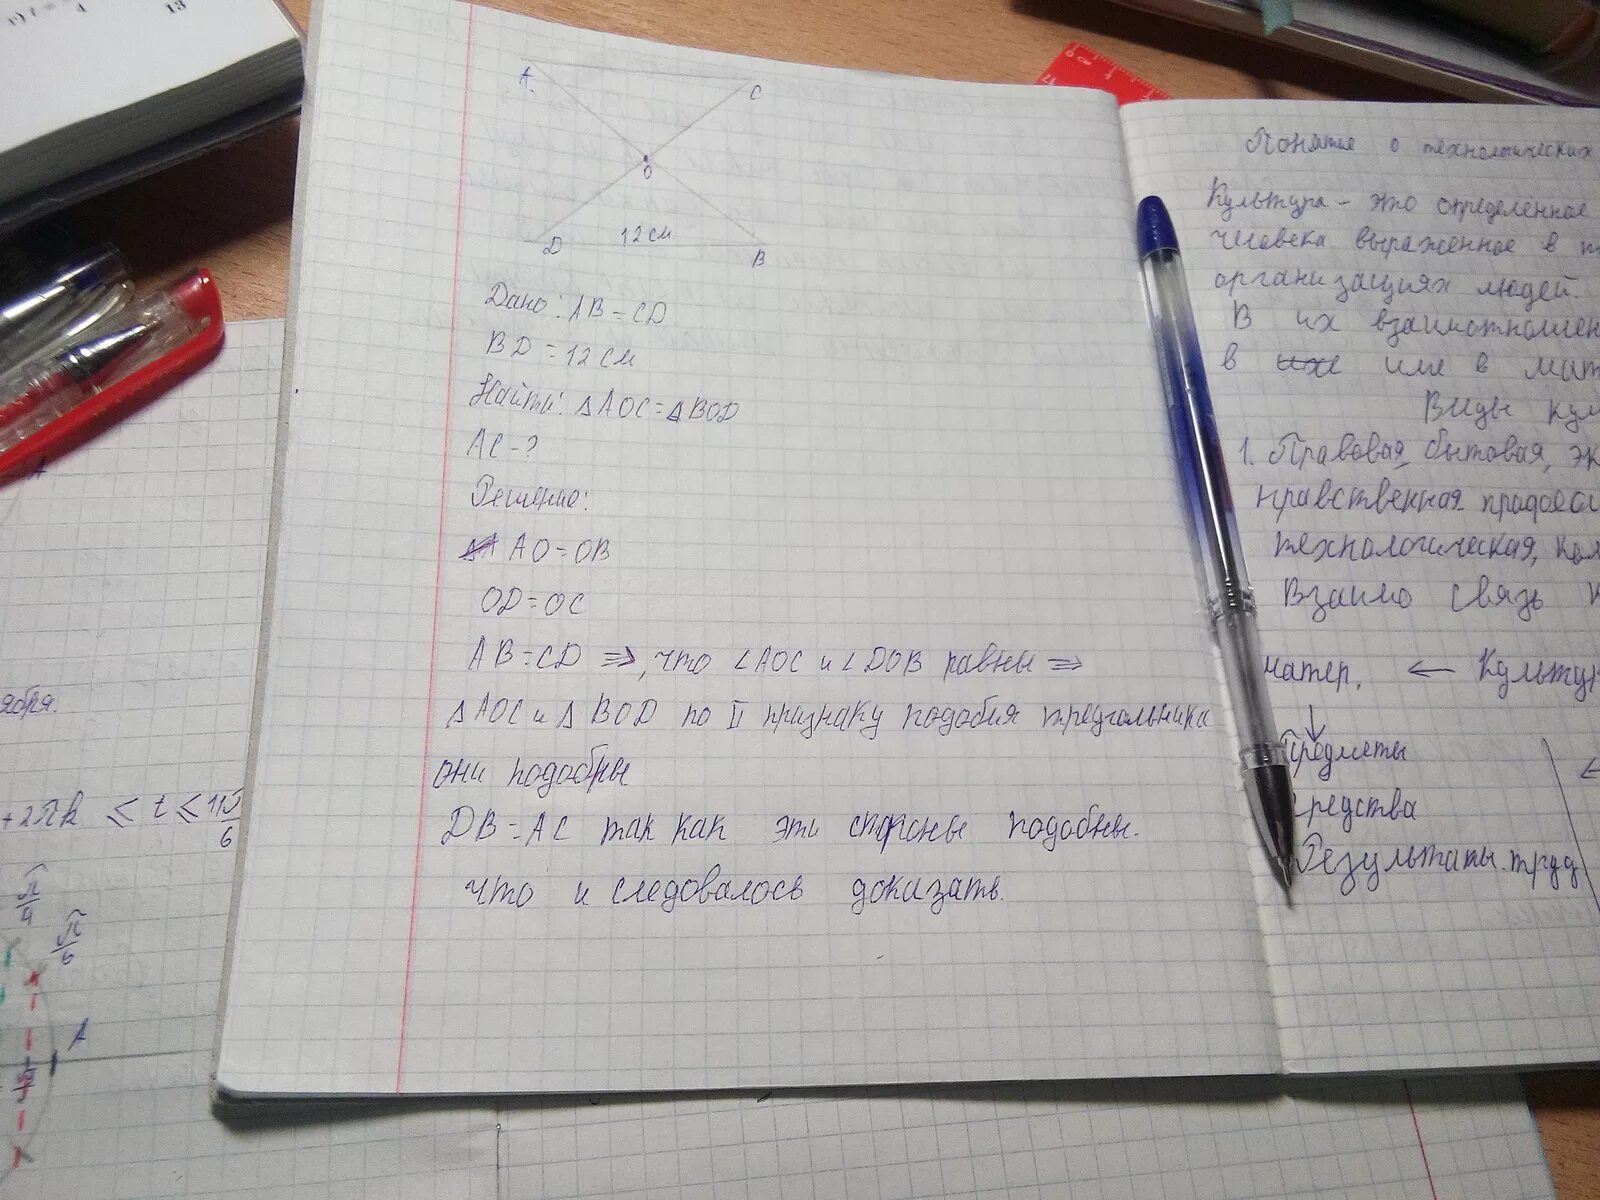 13
A
C
O
D
12 см
B
Дано: AB = CD
BD = 12 см
Найти: △AOC = △BOD
AC - ?
Решение:
AO = OB
OD = OC
AB = CD ⇒, что ∠AOC и ∠DOB равны ⇒
△AOC и △BOD по II признаку подобия треугольника
они подобны
DB = AC так как эти стороны подобны.
что и следовалось доказать.
Понятие о технологических
Культура - это определённое
человека выраженное в
организациях людей.
В их взаимоотношен
в или в мат
Виды кул
1. Правовая, бытовая, эк
нравственная
технологическая,
Взаимо связь к
матер. ← Культур
Предметы
средства
Результаты труд
ября.
+2πk ≤ t ≤ 11π/6
π/6
A